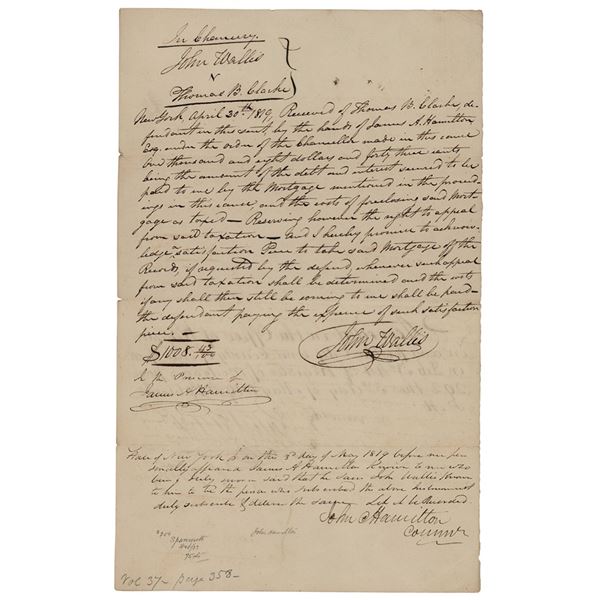 In Chancery.
John Wallis
v
Thomas B. Clarke
New York, April 30th 1819, Received of Thomas B. Clarke, de-
fendant in this suit, by the hands of James A. Hamilton
Esq. under the order of the Chancellor made in this cause
One thousand and eight dollars and forty three cents
being the amount of the debt and interest secured to be
paid to me by the Mortgage mentioned in the proceed-
ings in this cause and the costs of foreclosing said Mort-
gage as taxed — Reserving however the right to appeal
from said taxation — and I hereby promise to acknow-
ledge satisfaction Piece to take said Mortgage off the
Records, if requested by the defend. whenever such appeal
from said taxation shall be determined and the costs
if any shall then still be coming to me shall be paid —
the defendant paying the expence of such satisfaction
piece. —
$1008. 43/100
John Wallis
In the Presence of
James A Hamilton
State of New York ss on the 3d day of May 1819 before me per-
sonally appeared James A Hamilton known to me who
being duly sworn said that he saw John Wallis known
to him to be the person who subscribed the above instrument
duly subscribe & deliver the same. Let it be Recorded.
John C Hamilton
Commr
John Hamilton
Vol 37 - page 358 -